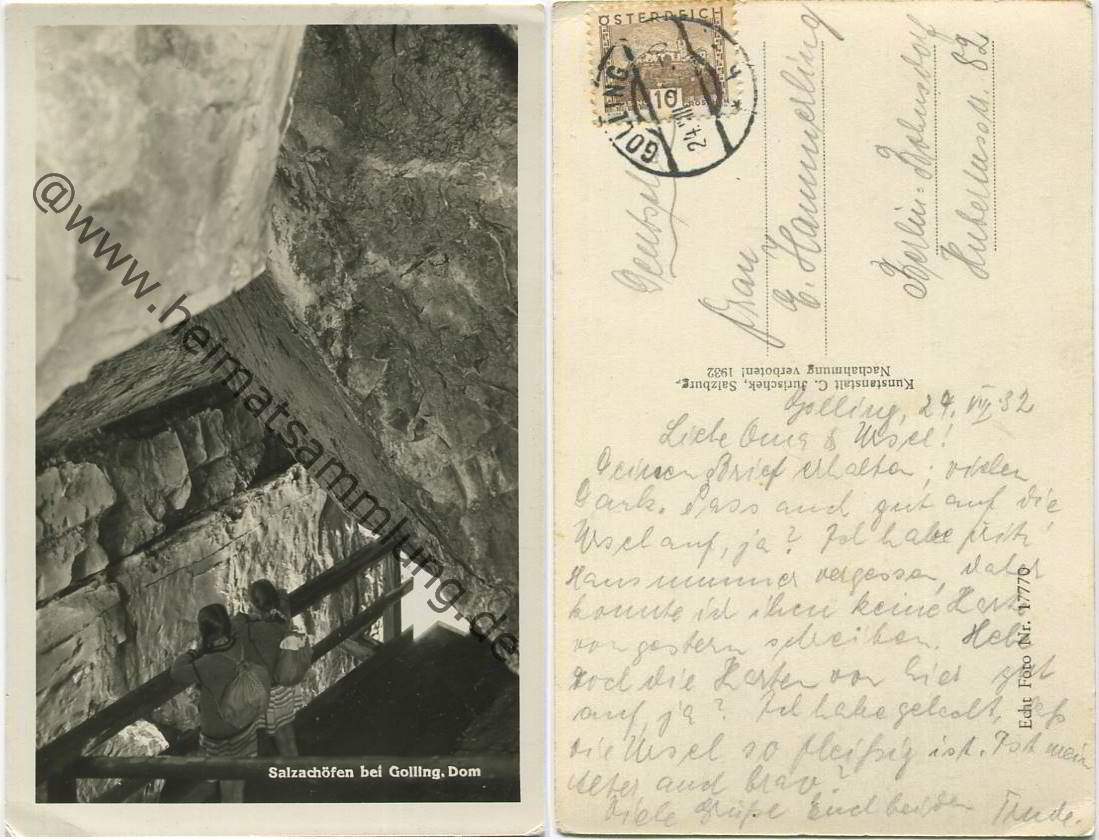 @www.heimatsammlung.de
Salzachöfen bei Golling. Dom
ÖSTERREICH
10
GROSCHEN
GOLLING
24.VII
Deutschl
Frau
E. Hammerling
Berlin-Bohnsdorf
Hubertusstr. 82
Kunstanstalt C. Jurischek, Salzburg,
Nachahmung verboten! 1932
Echt Foto Nr. 17770
Golling, 24. VII. 32
Liebe Oma & Ursel!
Deinen Brief erhalten; vielen
Dank. Pass auch gut auf die
Ursel auf, ja? Ich habe
Hausnummer vergessen, daher
konnte ich ihm keine Karte
von gestern schreiben. Heb
doch die Karten von hier gut
auf, ja? Ich habe gehört, daß
die Ursel so fleißig ist. Ist mein
Alter auch brav?
Viele Grüße Euch beiden Trude.